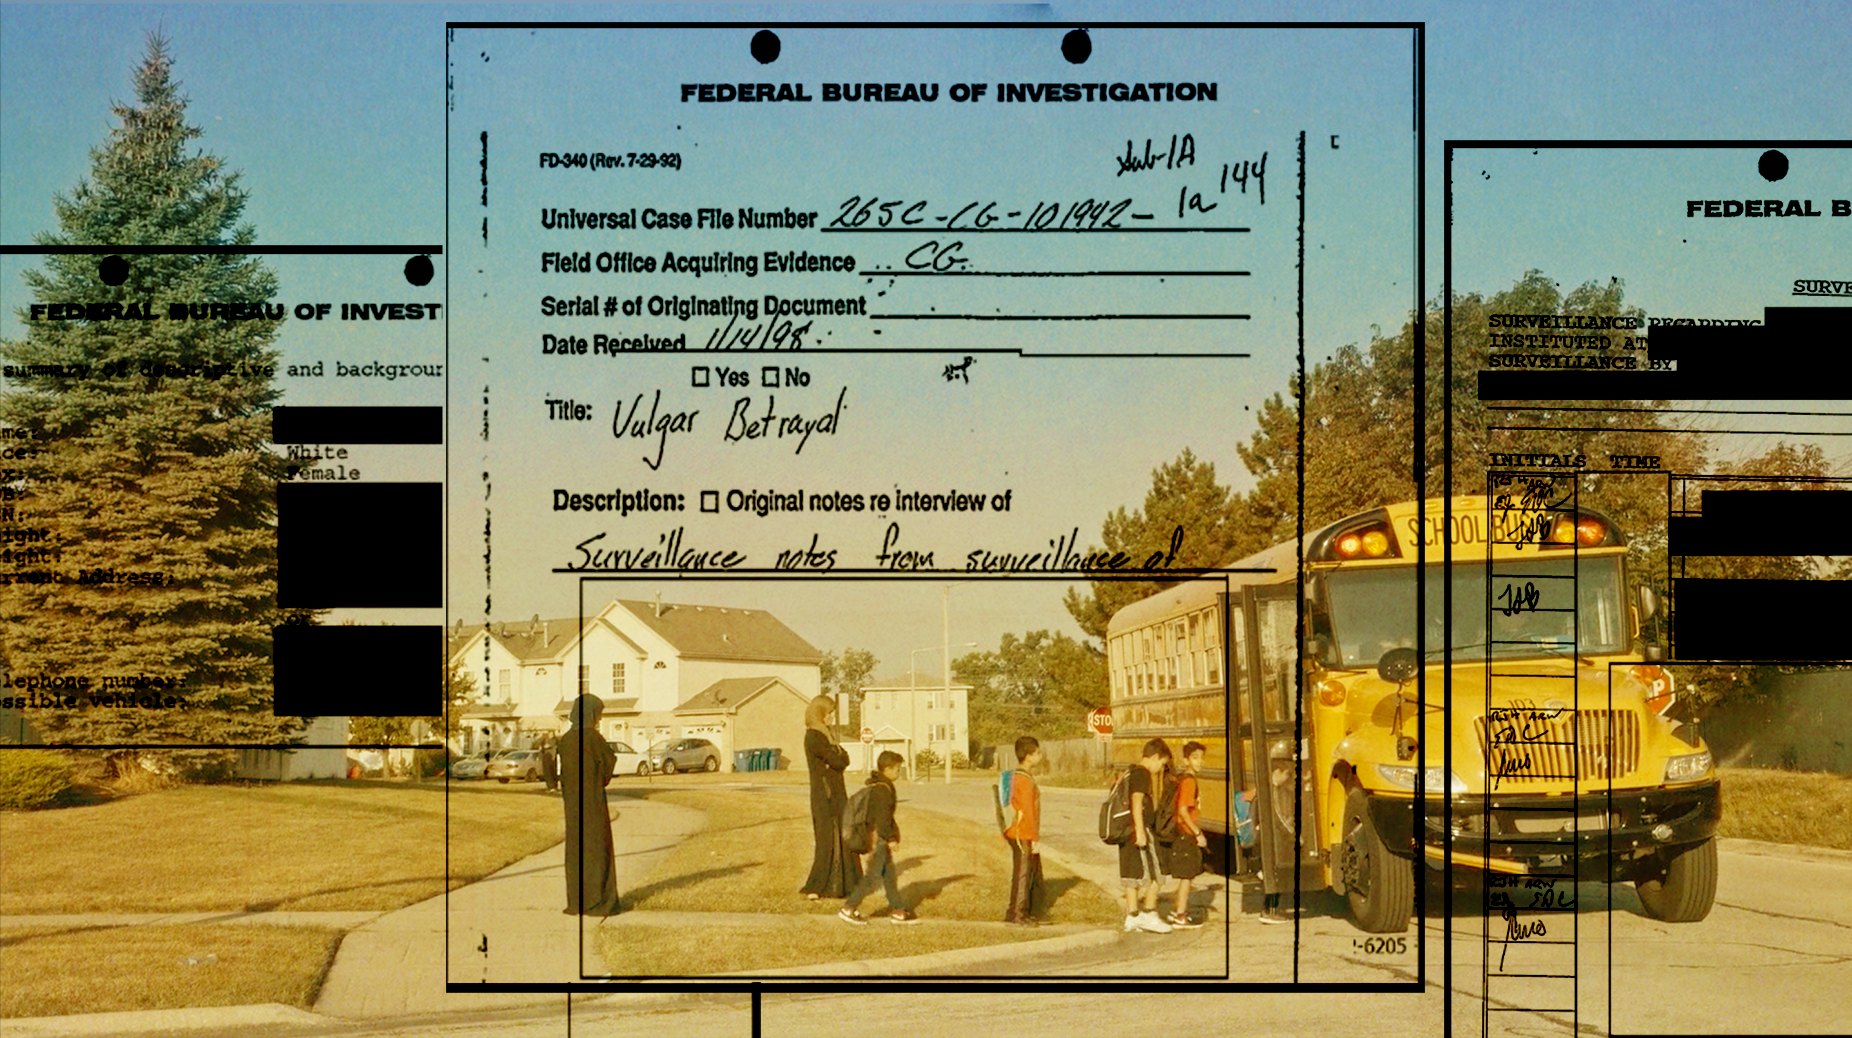 FEDERAL BUREAU OF INVEST
summary of descriptive and backgrour
me:
ce:
White
Female
N:
ight:
ight:
rrent Address:
lephone number:
ssible vehicle:
FEDERAL BUREAU OF INVESTIGATION
FD-340 (Rev. 7-29-92)
Sub-1A
1a 144
Universal Case File Number 265C-CG-101942-
Field Office Acquiring Evidence CG
Serial # of Originating Document
Date Received 1/14/98
Yes No
Title: Vulgar Betrayal
Description: Original notes re interview of
Surveillance notes from surveillance of
STO
SCHOOL BU
-6205
FEDERAL B
SURVE
SURVEILLANCE REGARDING
INSTITUTED AT
SURVEILLANCE BY
INITIALS TIME